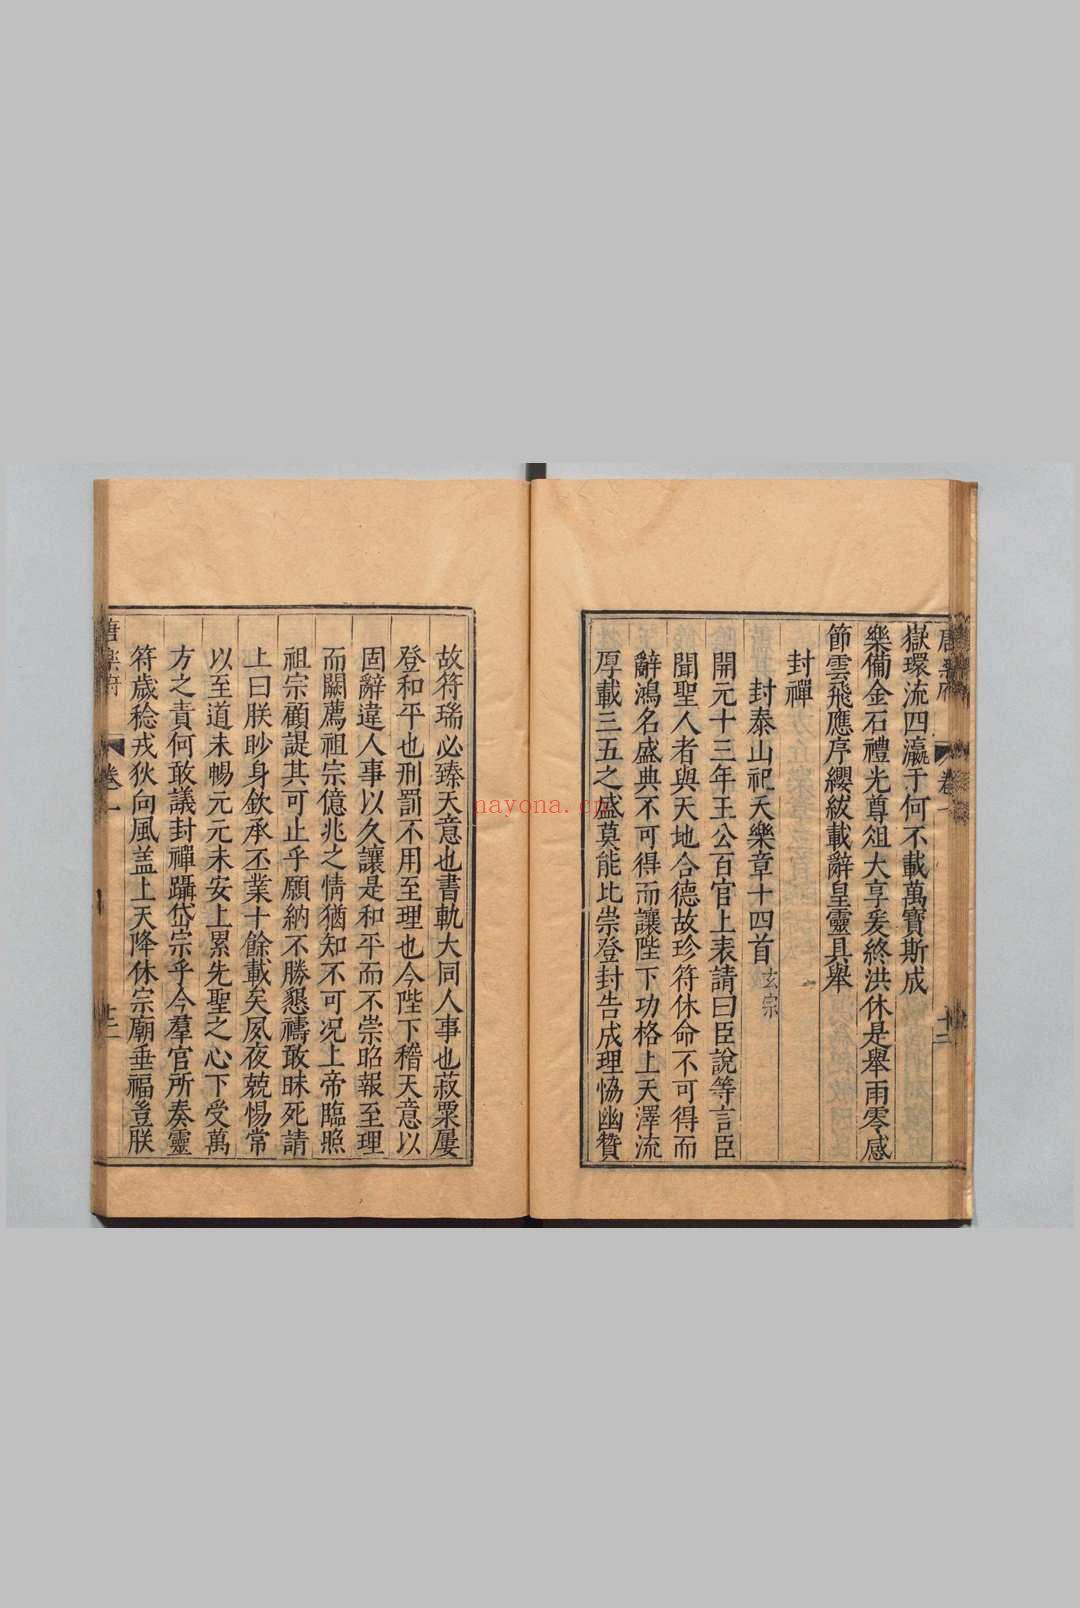 唐樂府 卷一 十二
嶽環流四瀛于何不載萬寶斯成
樂備金石禮光尊俎大享爰終洪休是舉雨零感
節雲飛應序纓紱載辭皇靈具舉
封禪
封泰山祀天樂章十四首 玄宗
開元十三年王公百官上表請曰臣說等言臣
聞聖人者與天地合德故珍符休命不可得而
辭鴻名盛典不可得而讓陛下功格上天澤流
厚載三五之盛莫能比崇登封告成理恊幽贊
故符瑞必臻天意也書軌大同人事也菽粟屢
登和平也刑罰不用至理也今陛下稽天意以
固辭違人事以久讓是和平而不崇昭報至理
而闕薦祖宗億兆之情猶知不可况上帝臨照
祖宗顧諟其可止乎願納不勝懇禱敢昧死請
上曰朕眇身欽承丕業十餘載矣夙夜兢惕常
以至道未暢元元未安上累先聖之心下受萬
方之責何敢議封禪躡岱宗乎今羣官所奏靈
符歲稔戎狄向風盖上天降休宗廟垂福豈朕
唐樂府 卷一
nayona.cn